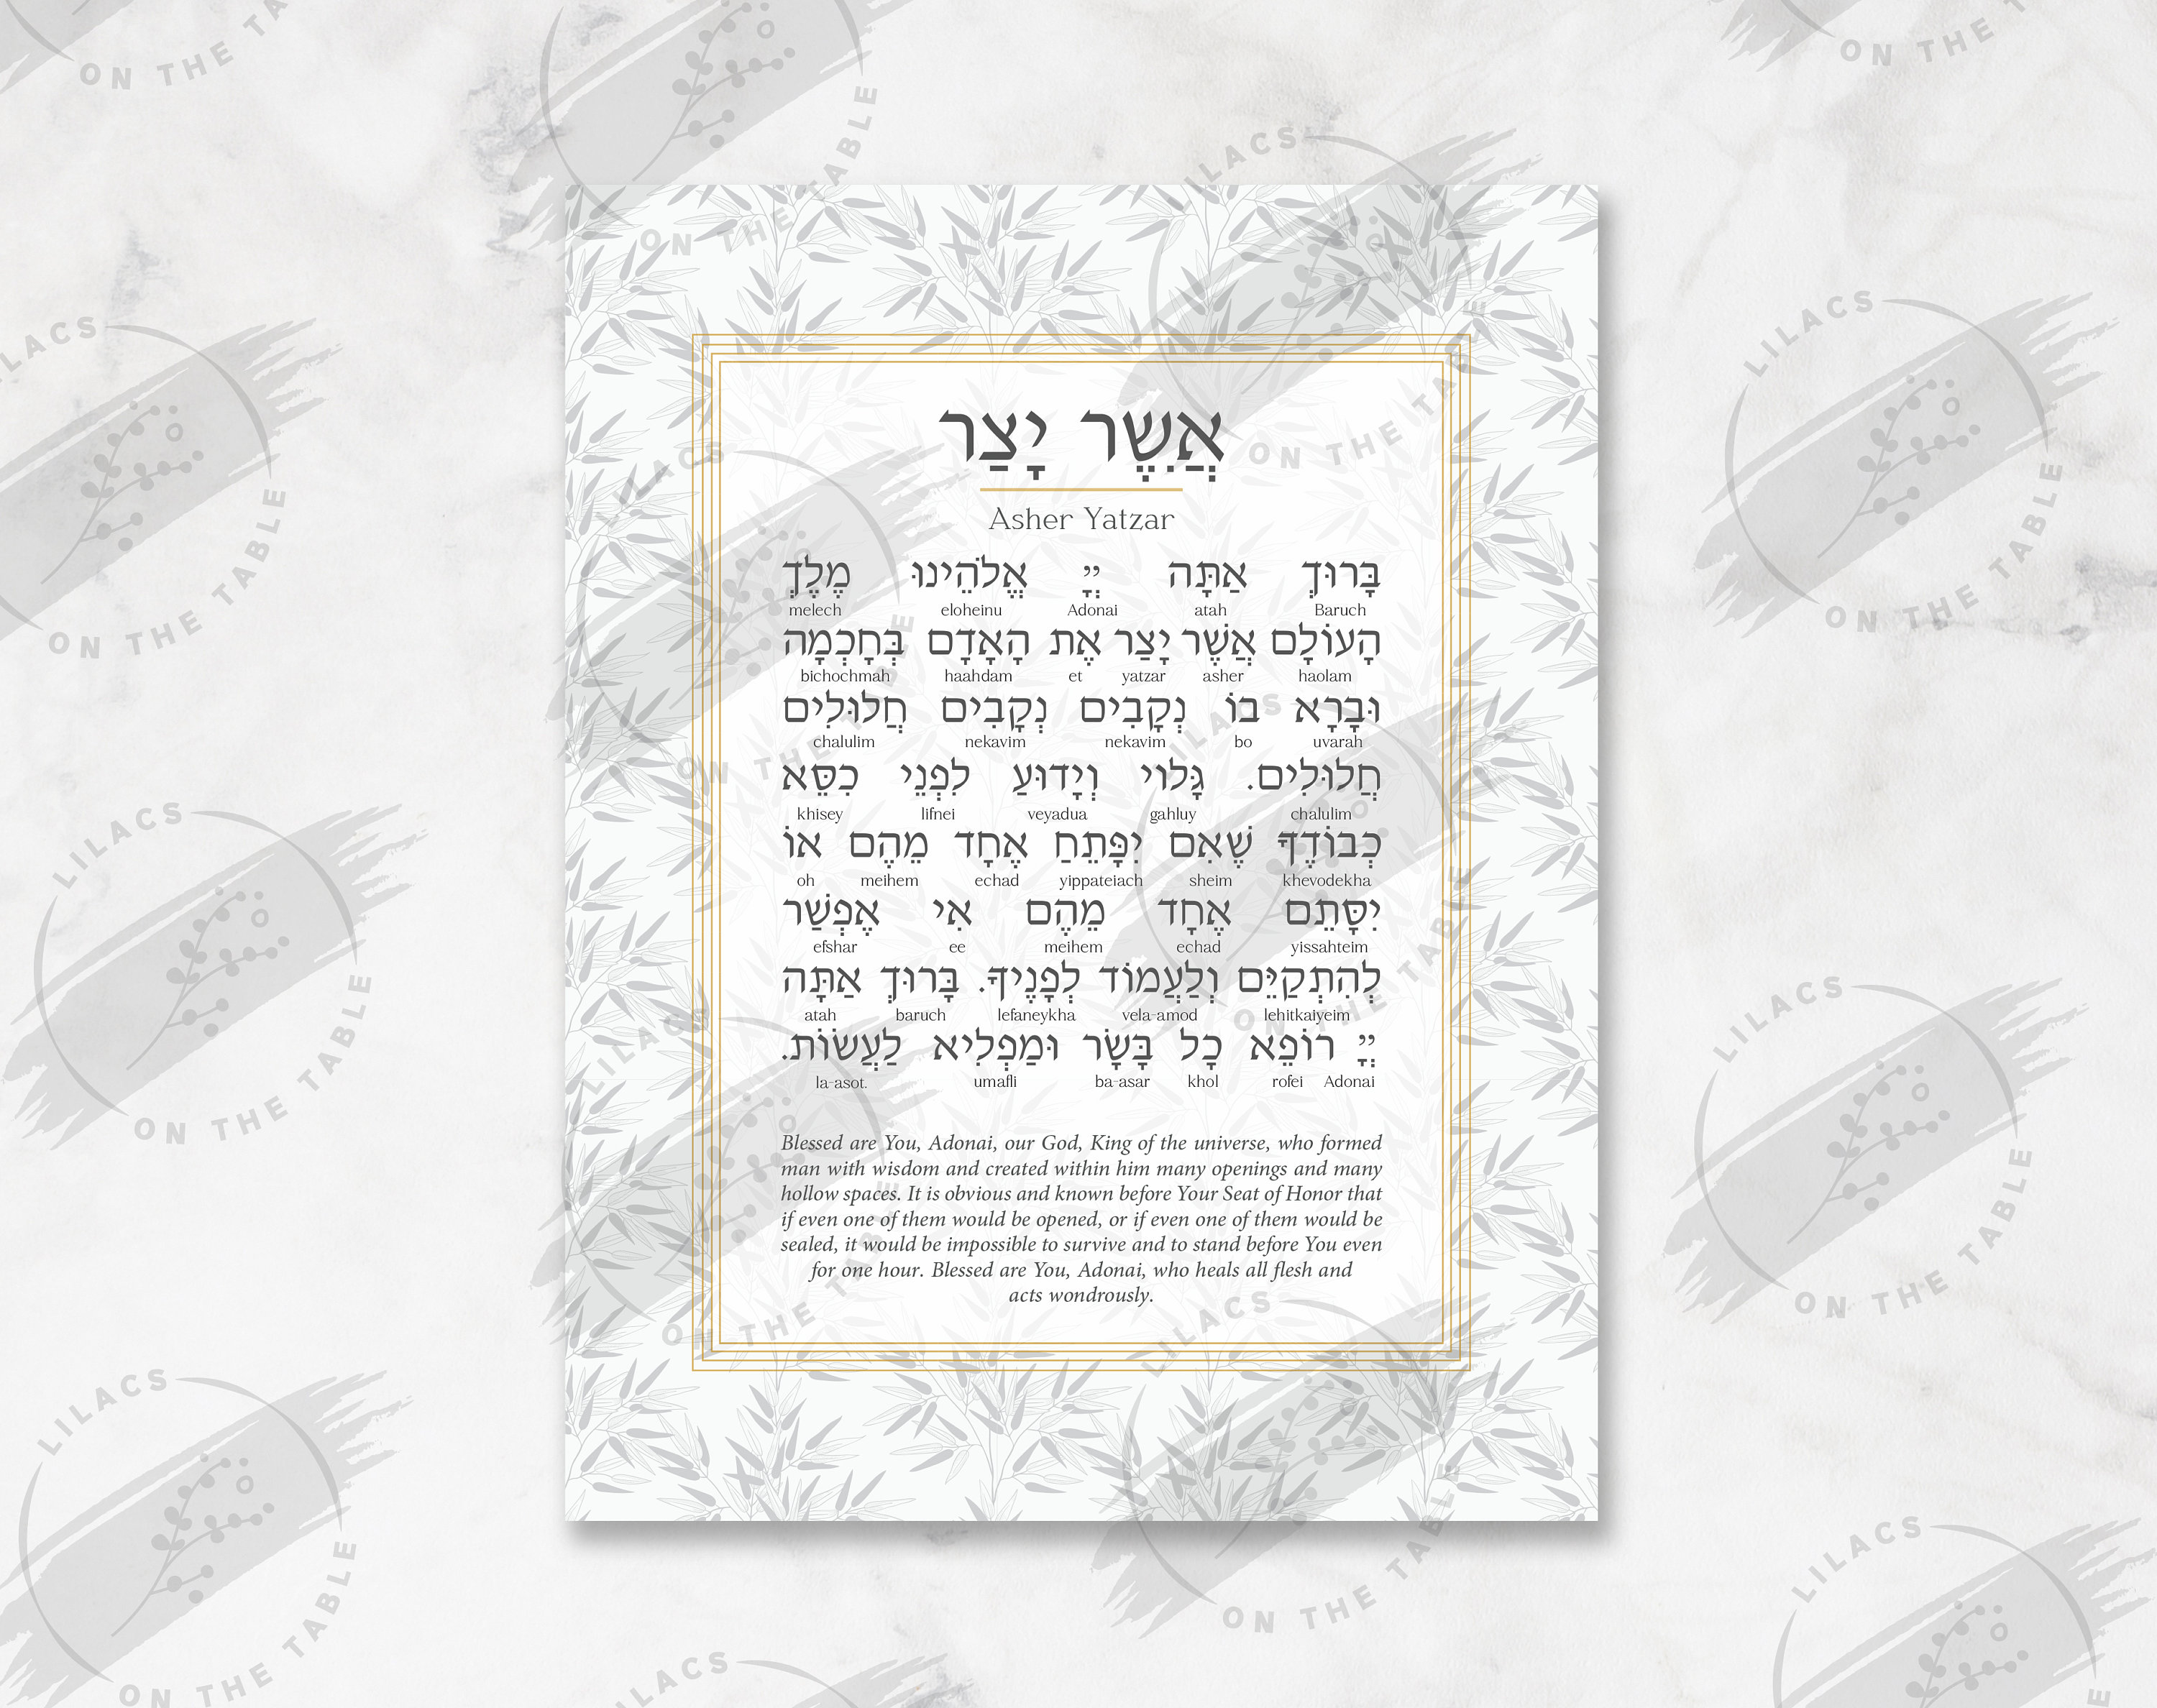 אֲשֶׁר יָצַר
Asher Yatzar
בָּרוּךְ אַתָּה יְיָ אֱלֹהֵינוּ מֶלֶךְ
melech eloheinu Adonai atah Baruch
הָעוֹלָם אֲשֶׁר יָצַר אֶת הָאָדָם בְּחָכְמָה
bichochmah haahdam et yatzar asher haolam
וּבָרָא בוֹ נְקָבִים נְקָבִים חֲלוּלִים
chalulim nekavim nekavim bo uvarah
חֲלוּלִים. גָּלוּי וְיָדוּעַ לִפְנֵי כִסֵּא
khisey lifnei veyadua gahluy chalulim
כְבוֹדֶךָ שֶׁאִם יִפָּתֵחַ אֶחָד מֵהֶם אוֹ
oh meihem echad yippateiach sheim khevodekha
יִסָּתֵם אֶחָד מֵהֶם אִי אֶפְשַׁר
efshar ee meihem echad yissahteim
לְהִתְקַיֵּם וְלַעֲמוֹד לְפָנֶיךָ. בָּרוּךְ אַתָּה
atah baruch lefaneykha vela-amod lehitkaiyeim
יְיָ רוֹפֵא כָל בָּשָׂר וּמַפְלִיא לַעֲשׂוֹת.
la-asot. umafli ba-asar khol rofei Adonai
Blessed are You, Adonai, our God, King of the universe, who formed
man with wisdom and created within him many openings and many
hollow spaces. It is obvious and known before Your Seat of Honor that
if even one of them would be opened, or if even one of them would be
sealed, it would be impossible to survive and to stand before You even
for one hour. Blessed are You, Adonai, who heals all flesh and
acts wondrously.
LILACS ON THE TABLE